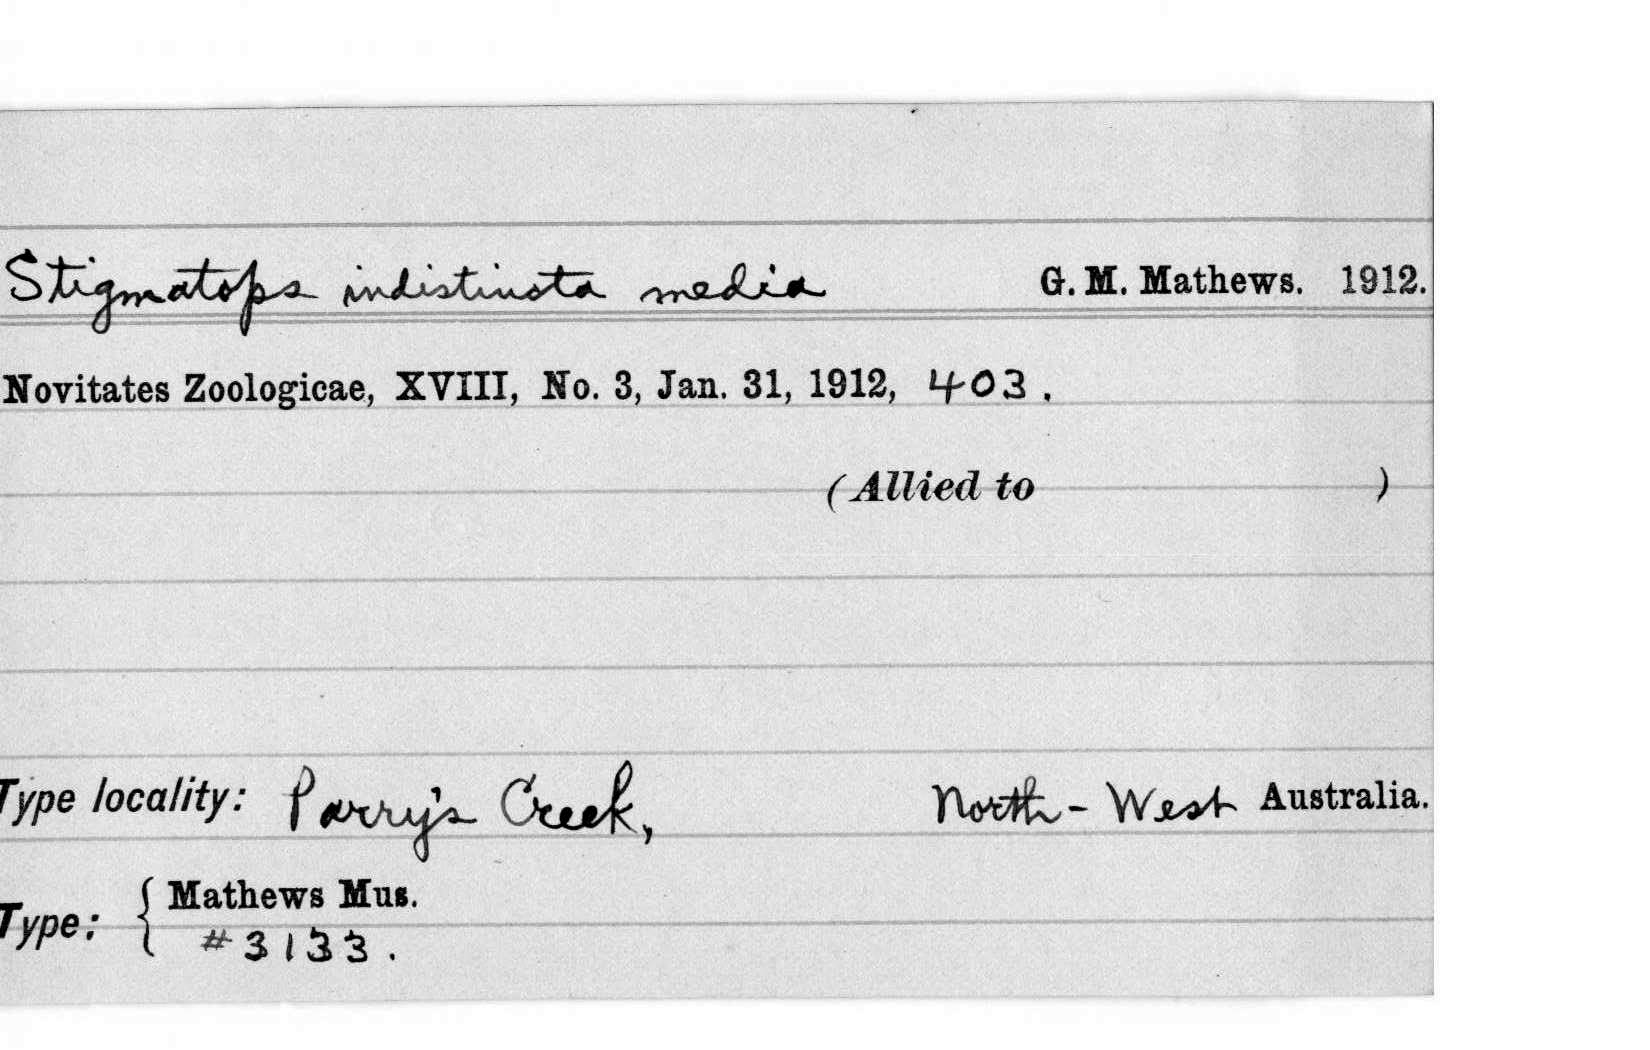 Stigmatops indistincta media G. M. Mathews. 1912.
Novitates Zoologicae, XVIII, No. 3, Jan. 31, 1912, 403.
(Allied to )
Type locality: Parry's Creek, North-West Australia.
Type: { Mathews Mus.
#3133.